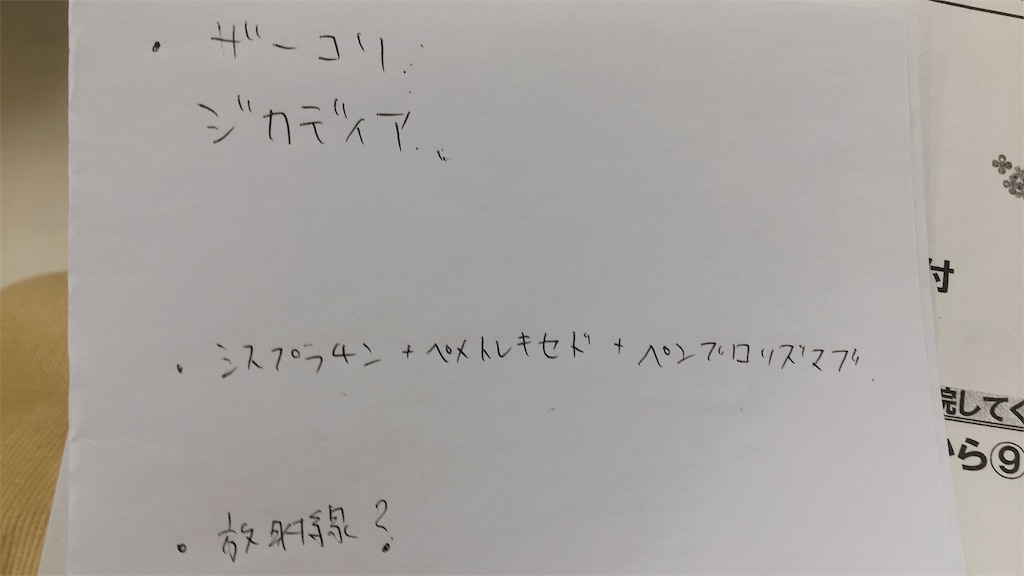 ・ ザーコリ
ジカディア
・ シスプラチン + ペメトレキセド + ペンブロリズマブ
・ 放射線?
付
院してく
から⑨